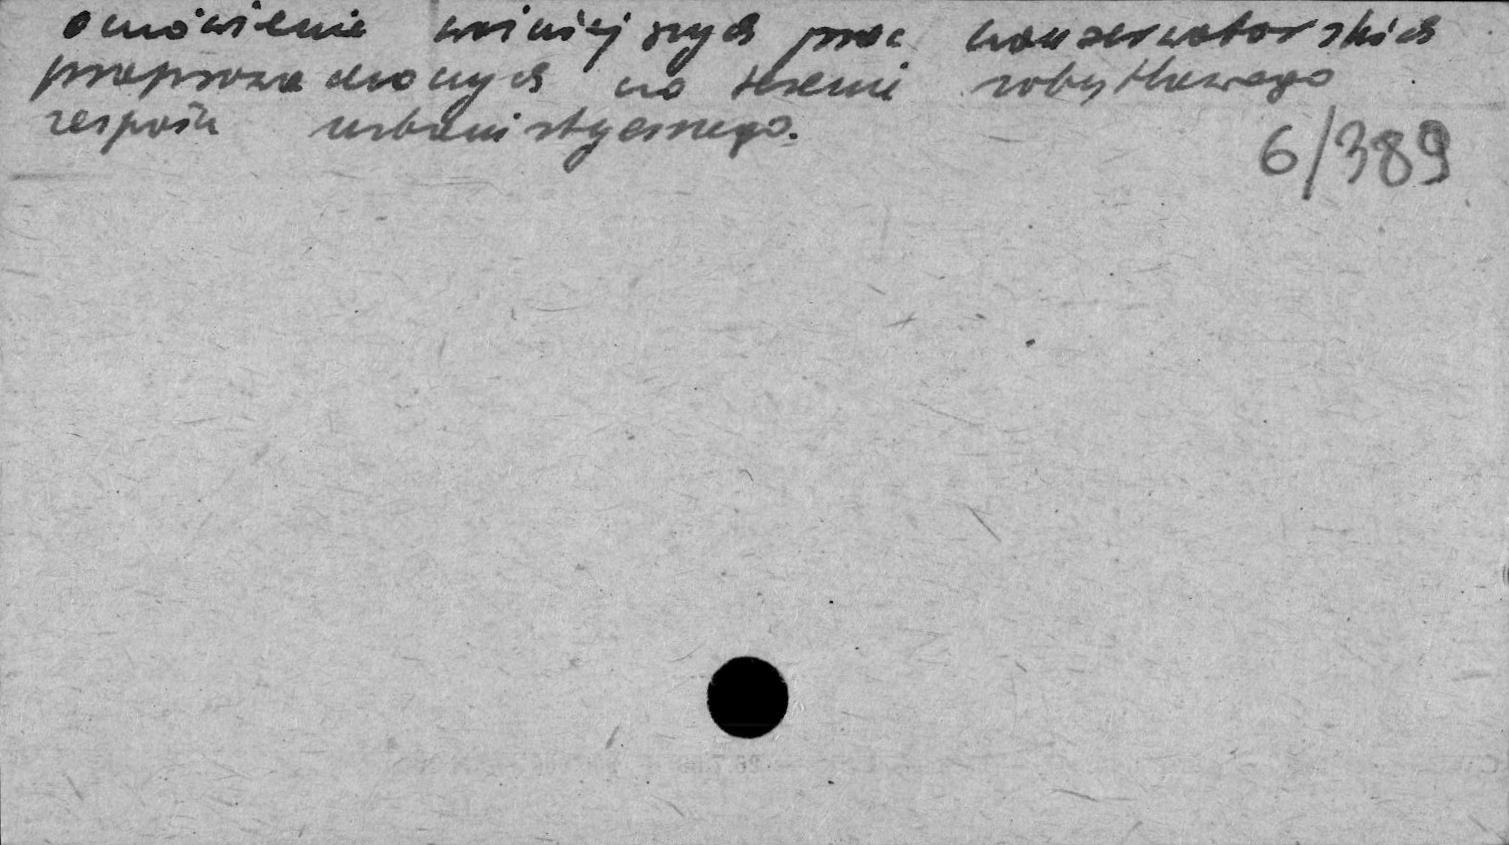 omówienie ważniejszych prac konserwatorskich
przeprowadzonych na terenie zabytkowego
zespołu urbanistycznego.
6/389